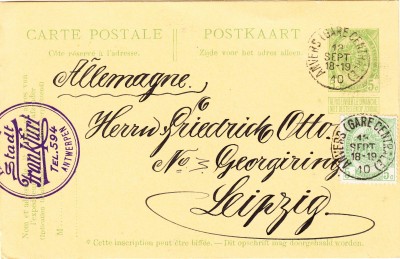 CARTE POSTALE POSTKAART
Côté réservé à l'adresse. Zijde voor het adres alleen.
ANVERS (GARE CENTRALE)
12
SEPT
18-19
10
5c
Allemagne.
Stadt
Frankfurt
TEL. 584
ANTWERPEN
Herrn Friedrich Otto
No 3 Georgiring
Leipzig.
ANVERS (GARE CENTRALE)
12
SEPT
18-19
10
M
* Cette inscription peut être biffée. — Dit opschrift mag doorgehaald worden.